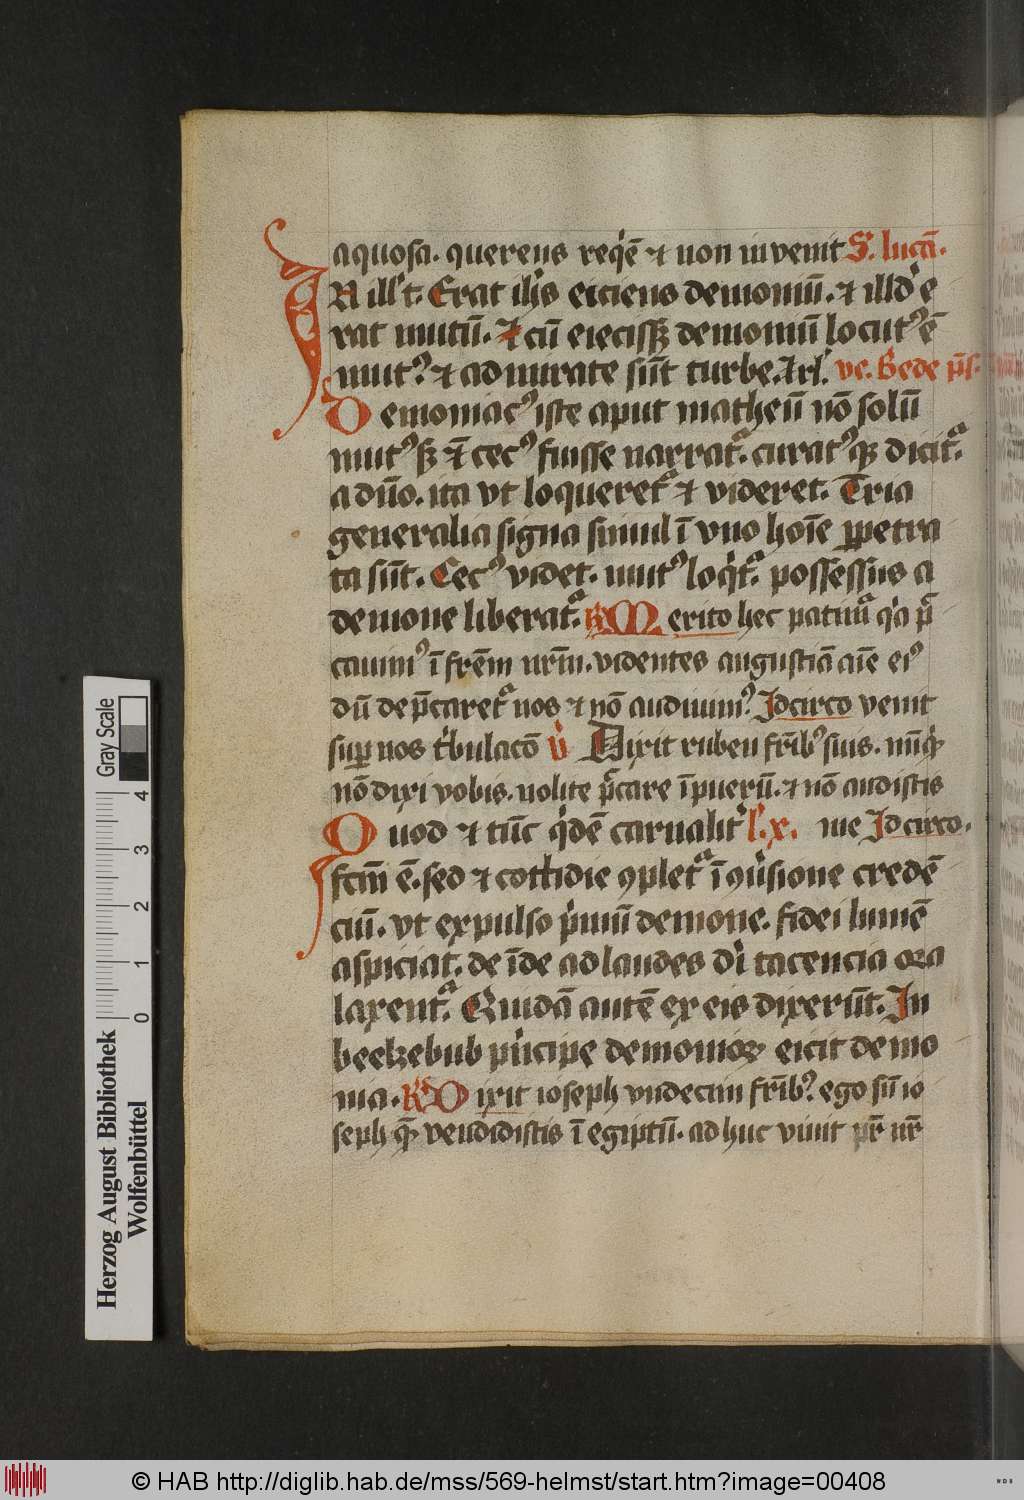 aquosa. querens req̉ē ⁊ non invenit S. lucā.
IN ill̉ t. Erat ih̉s eiciens demoniū. ⁊ illd̉ e
rat mutū. ⁊ cū eiecissꝫ demoniū locutꝰ ē
mutꝰ ⁊ admirate sūt turbe. ⁊ rl̉. ve. Bede p̄s.
Demoniacꝰ iste aput matheū nō solū
mutꝰ sꝫ ⁊ cecꝰ fuisse narrat᷑. curatꝰqꝫ dicit᷑.
a dn̄o. ita vt loqueret᷑ ⁊ videret. Tria
generalia signa simul ī vno hoīe ꝑpetra
ta sūt. Cecꝰ videt. mutꝰ loqt᷑. possessus a
demone liberat᷑. R Merito hec patim᷑ qa p̄
cauimꝰ ī frēm nr̄m. videntes angustiā aīe eiꝰ
dū dep̄caret᷑ nos ⁊ nō audiuimꝰ Jdcirco venit
suꝑ nos tbulacō v̉ Dixit ruben fr̄ibꝰ suis. nūq̉
nō dixi vobis. nolite p̄care ī puerū. ⁊ nō audistis
Quod ⁊ tūc q̉dē carnalit̉ l̉. x. me Jdcirco.
fcm̄ ē. sed ⁊ cottidie ꝯplet᷑ ī ꝯu̓sione credē
ciū. vt expulso pmū demone. fidei lumē
aspiciat. de īde ad laudes di tacencia ora
laxent᷑. Quidā autē ex eis dixerūt. Jn
beelzebub pncipe demonioꝝ eicit demo
nia. R Dixit ioseph vndecim fr̄ibꝰ. ego sū io
seph q̄ vendidistis ī egiptū. ad huc viuit pr̄ nr̄
Gray Scale
4
3
2
1
0
Herzog August Bibliothek
Wolfenbüttel
© HAB http://diglib.hab.de/mss/569-helmst/start.htm?image=00408